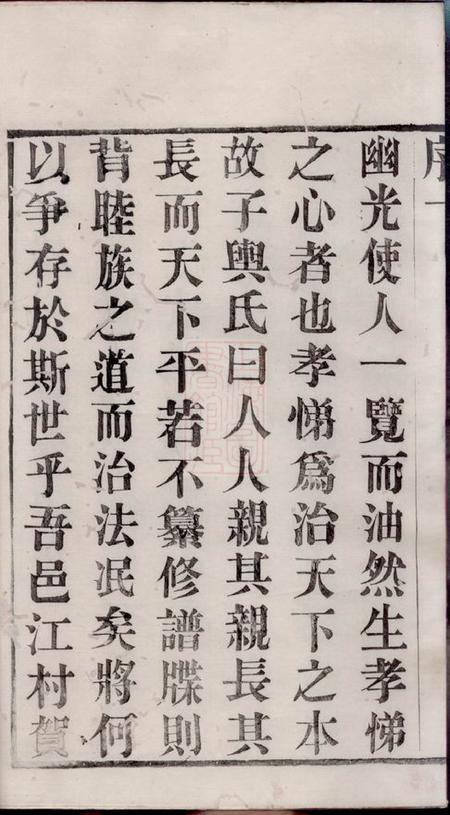 序一
幽光使人一覽而油然生孝悌
之心者也孝悌爲治天下之本
故子輿氏曰人人親其親長其
長而天下平若不纂修譜牒則
背睦族之道而治法冺矣將何
以爭存於斯世乎吾邑江村賀